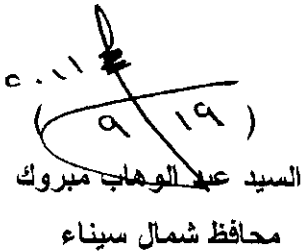 ٢٠١١
( ٩ ١٩ )
السيد عبد الوهاب مبروك
محافظ شمال سيناء